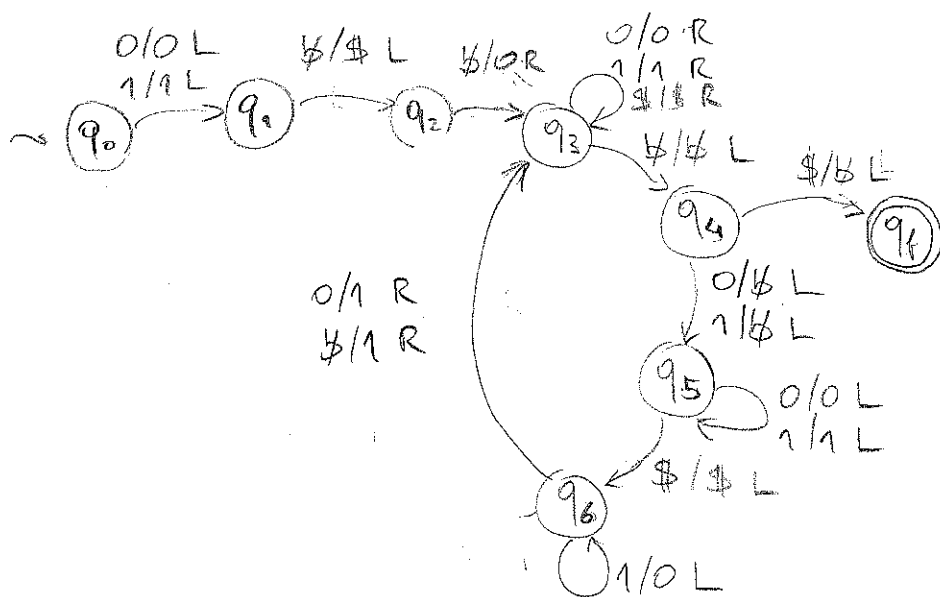 0/0 L
1/1 L
ƀ/$ L
ƀ/0 R
0/0 R
1/1 R
$/$ R
q₀
q₁
q₂
q₃
ƀ/ƀ L
$/ƀ L
q₄
q_f
0/1 R
ƀ/1 R
0/ƀ L
1/ƀ L
q₅
0/0 L
1/1 L
$/$ L
q₆
1/0 L